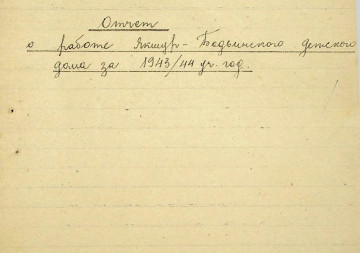 Отчет
о работе Якшур-Бодьинского детского
дома за 1943/44 уч. год.